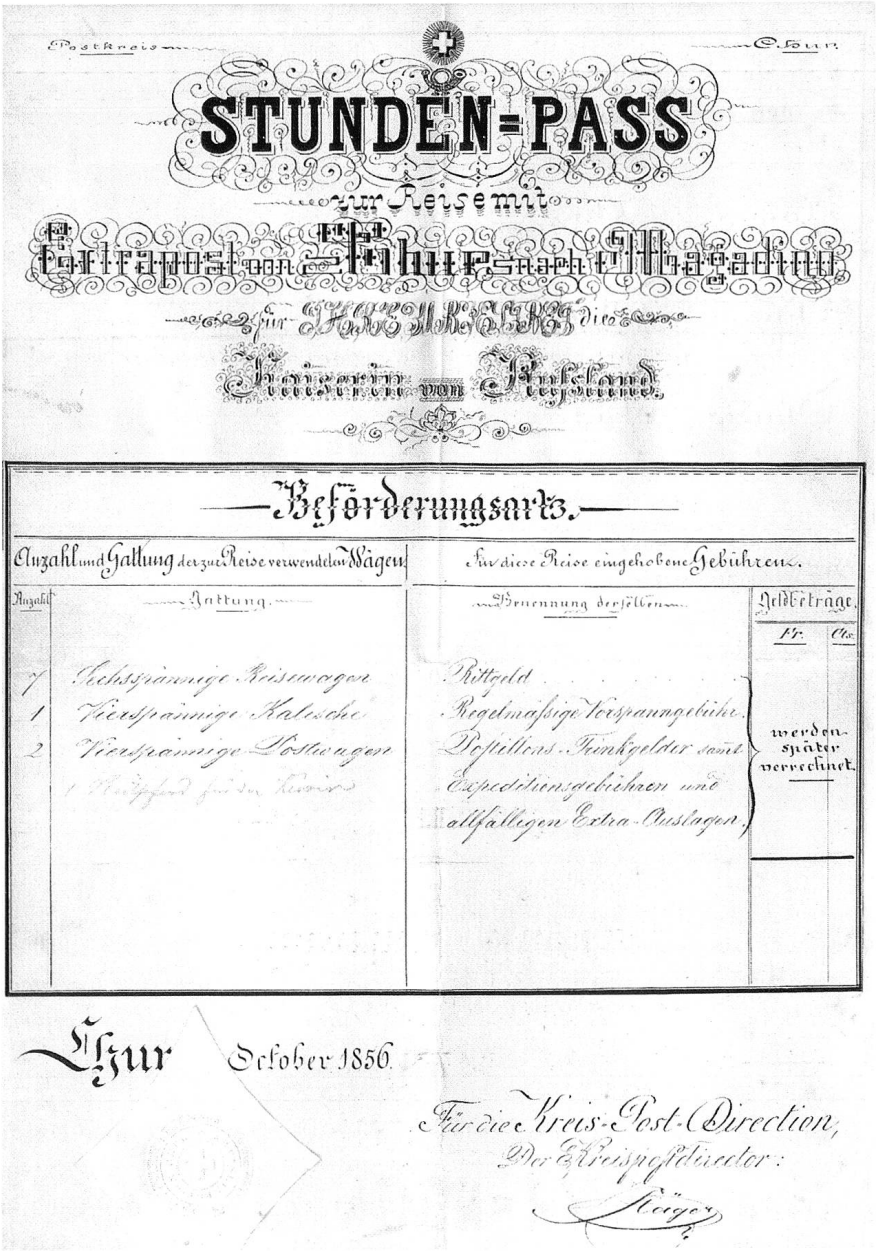 Postkreis Chur.
STUNDEN=PASS
zur Reise mit
Extrapost von Chur nach Magadino
für IHRE MAJESTÄT die
Kaiserin von Rußland.
Beförderungsart.
Anzahl und Gattung der zur Reise verwendeten Wägen.
Für diese Reise eingehobene Gebühren.
Anzahl Gattung. Benennung derselben Geldbeträge.
Fr. Cts.
7 Sechsspännige Reisewagen Rittgeld
1 Vierspännige Kalesche Regelmäßige Vorspanngebühr.
2 Vierspännige Postwagen Postillons-Trinkgelder samt
1 Reitpferd für den Expeditionsgebühren und
allfälligen Extra-Auslagen.
werden
später
verrechnet.
Chur October 1856.
Für die Kreis-Post-Direction,
Der Kreispostdirector: